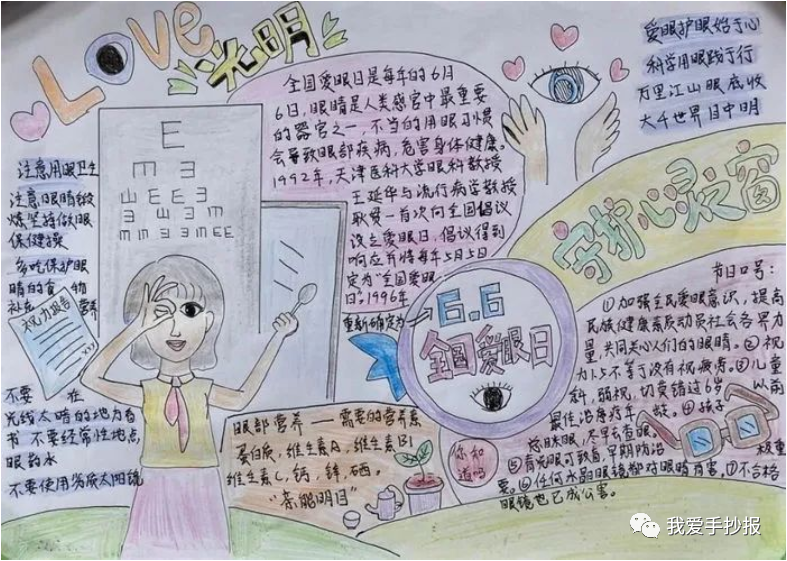 Love
光明
爱眼护眼始于心
科学用眼践于行
万里江山眼底收
大千世界目中明
全国爱眼日是每年的6月
6日,眼睛是人类感官中最重要
的器官之一,不当的用眼习惯
会导致眼部疾病,危害身体健康。
1992年,天津医科大学眼科教授
王延华与流行病学教授
耿贯一首次向全国倡议
设立爱眼日,倡议得到
响应并将每年5月5日
定为"全国爱眼
日"。1996年
重新确定为
6.6
全国爱眼日
E
m 3
W E E 3
3 W 3 m
m m 3 3 m E E
注意用眼卫生
注意眼睛锻
炼坚持做眼
保健操
多吃保护眼
睛的食物
补充营养
视力报告
不要在
光线太暗的地方看
书 不要经常性地点
眼药水
不要使用劣质太阳镜
眼部营养——需要的营养素
蛋白质,维生素A,维生素B1
维生素C,钙,锌,硒。
"亲能明目"
你知
道吗
守护心灵之窗
节日口号:
①加强全民爱眼意识,提高
民族健康素质动员社会各界力
量,共同关心人们的眼睛。②视
力1.5不等于没有视疲劳。③儿童
斜,弱视,切莫错过6岁以前
最佳治疗年龄。④孩子
总眯眼,尽早去查眼。
⑤青光眼可致盲,早期防治极重
要。⑥任何水晶眼镜都对眼睛有害,⑦不合格
眼镜也已成公害。
我爱手抄报